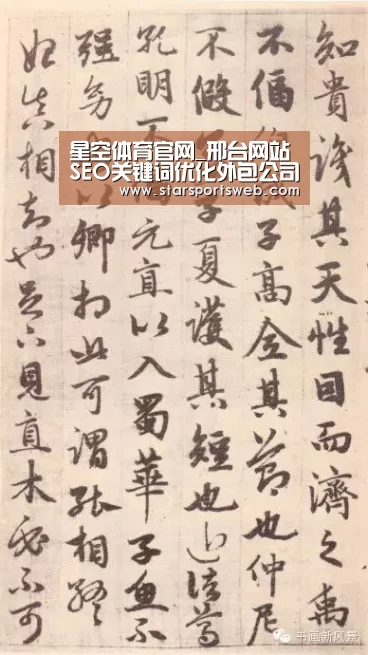 知貴識其天性因而濟之禹
不偪子高全其節也仲尼
不假子夏護其短也近諸葛
孔明不元直以入蜀華子魚不
強幼以卿相此可謂能相終
始真相知也足下見直木必不可
星空体育官网_邢台网站
SEO关键词优化外包公司
www.starsportsweb.com
书画新风景